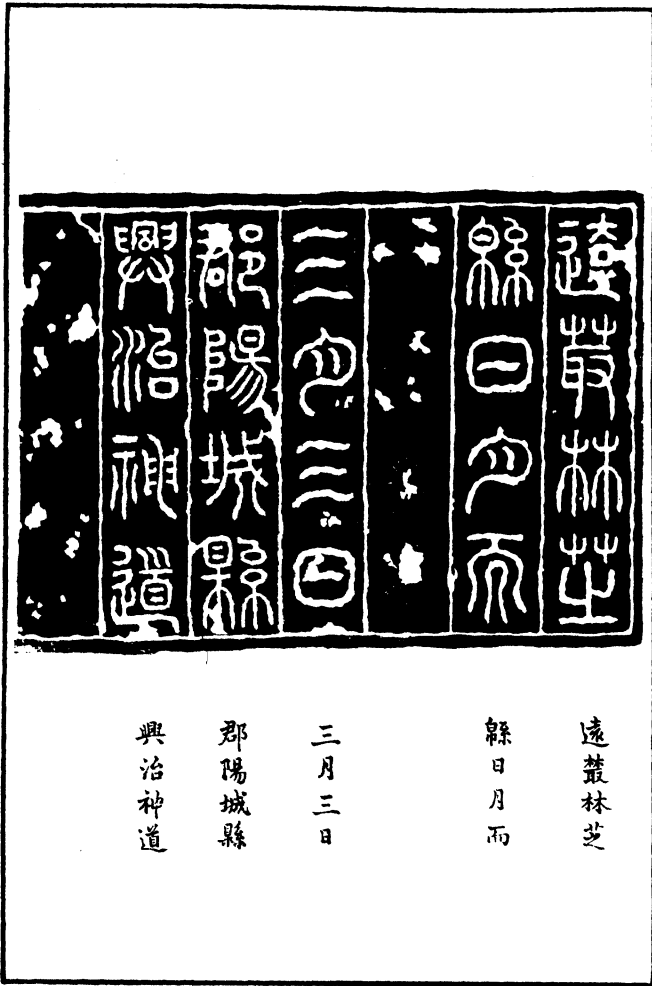 遠叢林芝
緜日月而
三月三日
郡陽城縣
興治神道
遠叢林芝
緜日月而
三月三日
郡陽城縣
興治神道